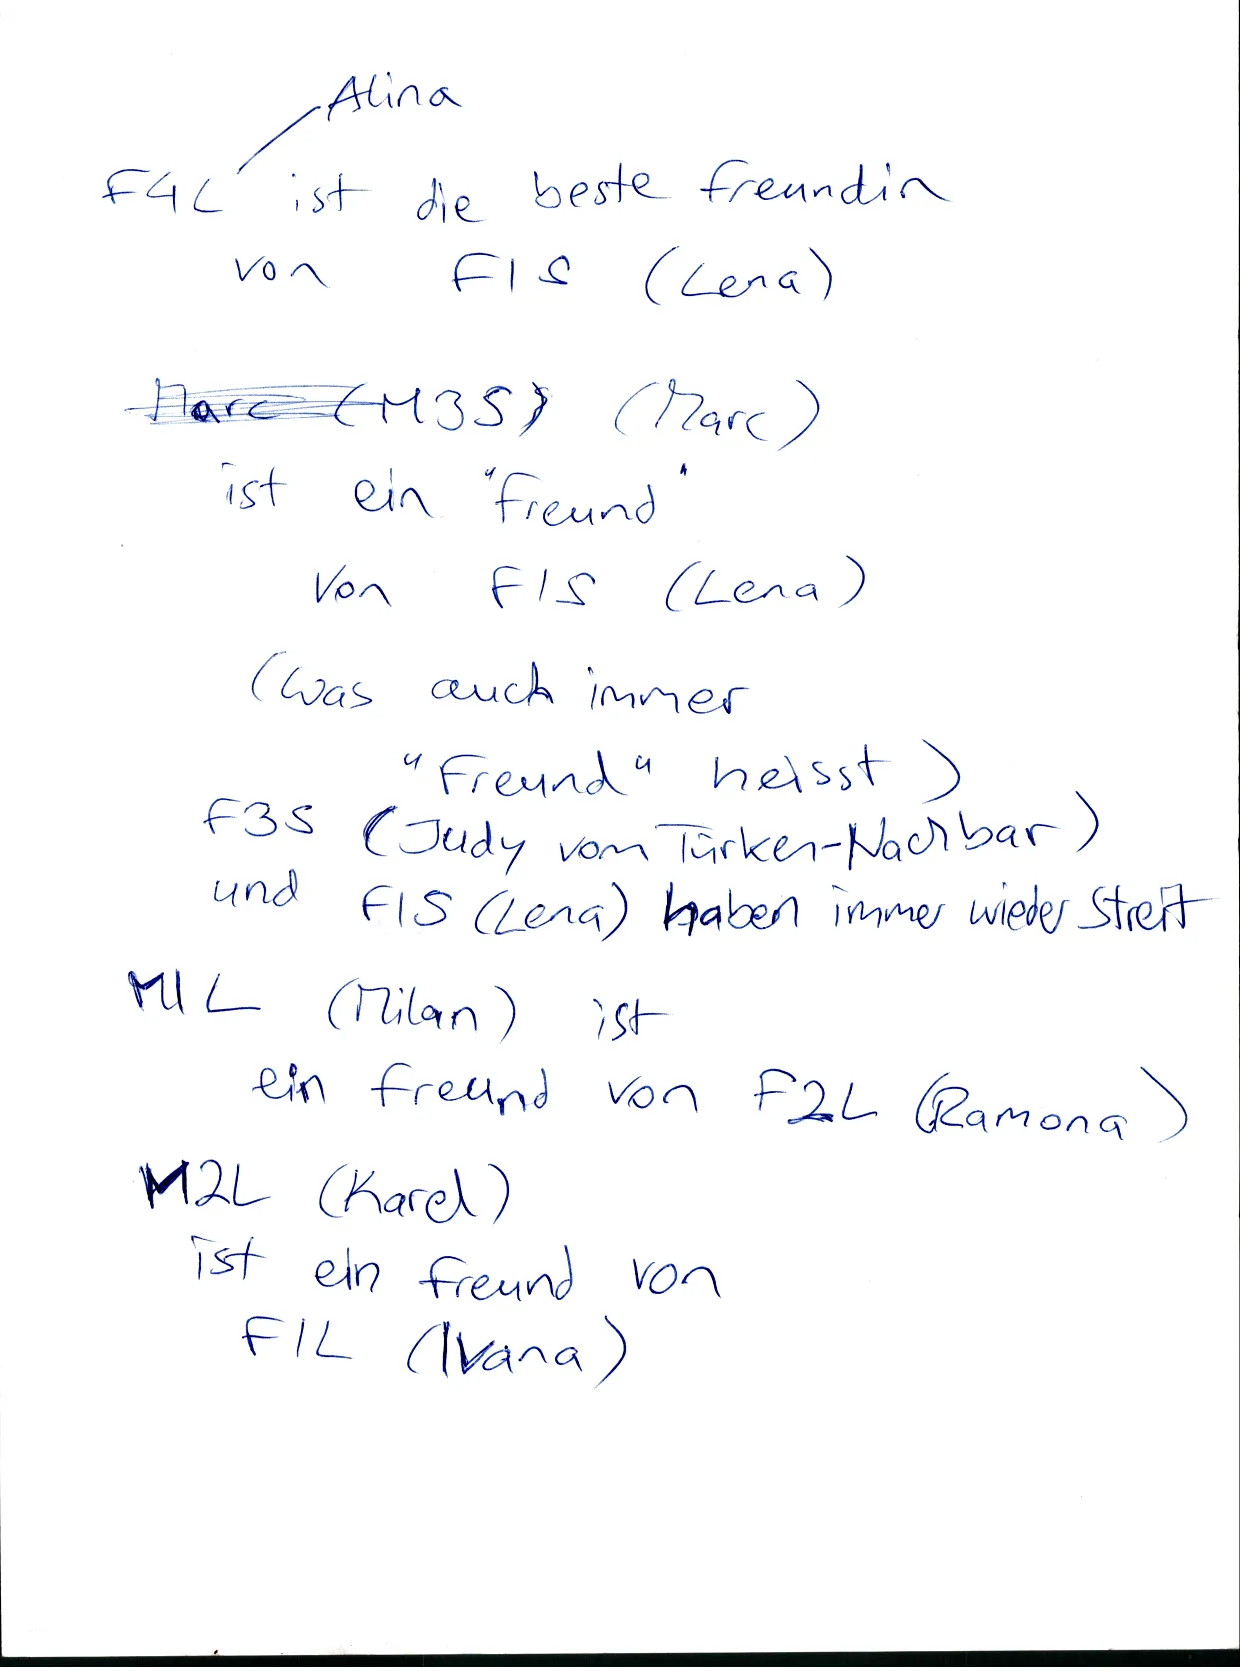 Alina
F4L ist die beste Freundin
von F1S (Lena)
Marc (M3S) (Marc)
ist ein "Freund"
von F1S (Lena)
(was auch immer
"Freund" heisst)
F3S (Judy vom Türken-Nachbar)
und F1S (Lena) haben immer wieder Streit
M1L (Milan) ist
ein Freund von F2L (Ramona)
M2L (Karel)
ist ein Freund von
F1L (Ivana)